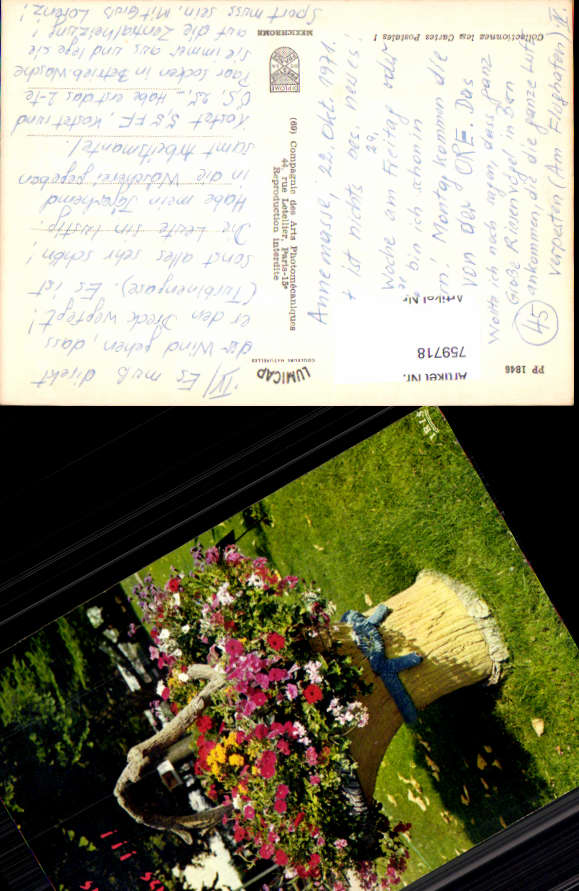 PP 1846
LUMICAP
COULEURS NATURELLES
Artikel Nr.
759718
Artikel Nr.
(69) Compagnie des Arts Photomécaniques
44, rue Letellier, Paris-15e
Reproduction interdite
MEXICHROME
Collectionnez les Cartes Postales !
IV) Es muß direkt
der Wind gehen, dass
er den Dreck wegfegt!
(Turbinengase). Es ist
sonst alles sehr schön!
Die Leute sin lustig.
Habe mein
in die Wäscherei gegeben
samt Arbeitsmantel.
Kostet 5,5 FF. Kostet und
Habe erst das 2-te
Paar Socken in Betrieb. Wasche
sie immer aus und lege sie
auf die Zentralheizung!
Sport muss sein, mit Gruß Lorenz!
Annemasse, 22. Okt. 1971.
ist nichts bes. neues!
Woche am Freitag oder
29,
bin ich schon in
Montag kommen die
von der ORF. Das
Wollte ich noch sagen, dass ganz
Große Riesenvögel in Ben
ankommen, die die ganze Luft
Verpesten (Am Flughafen) IV.
45
IRIS